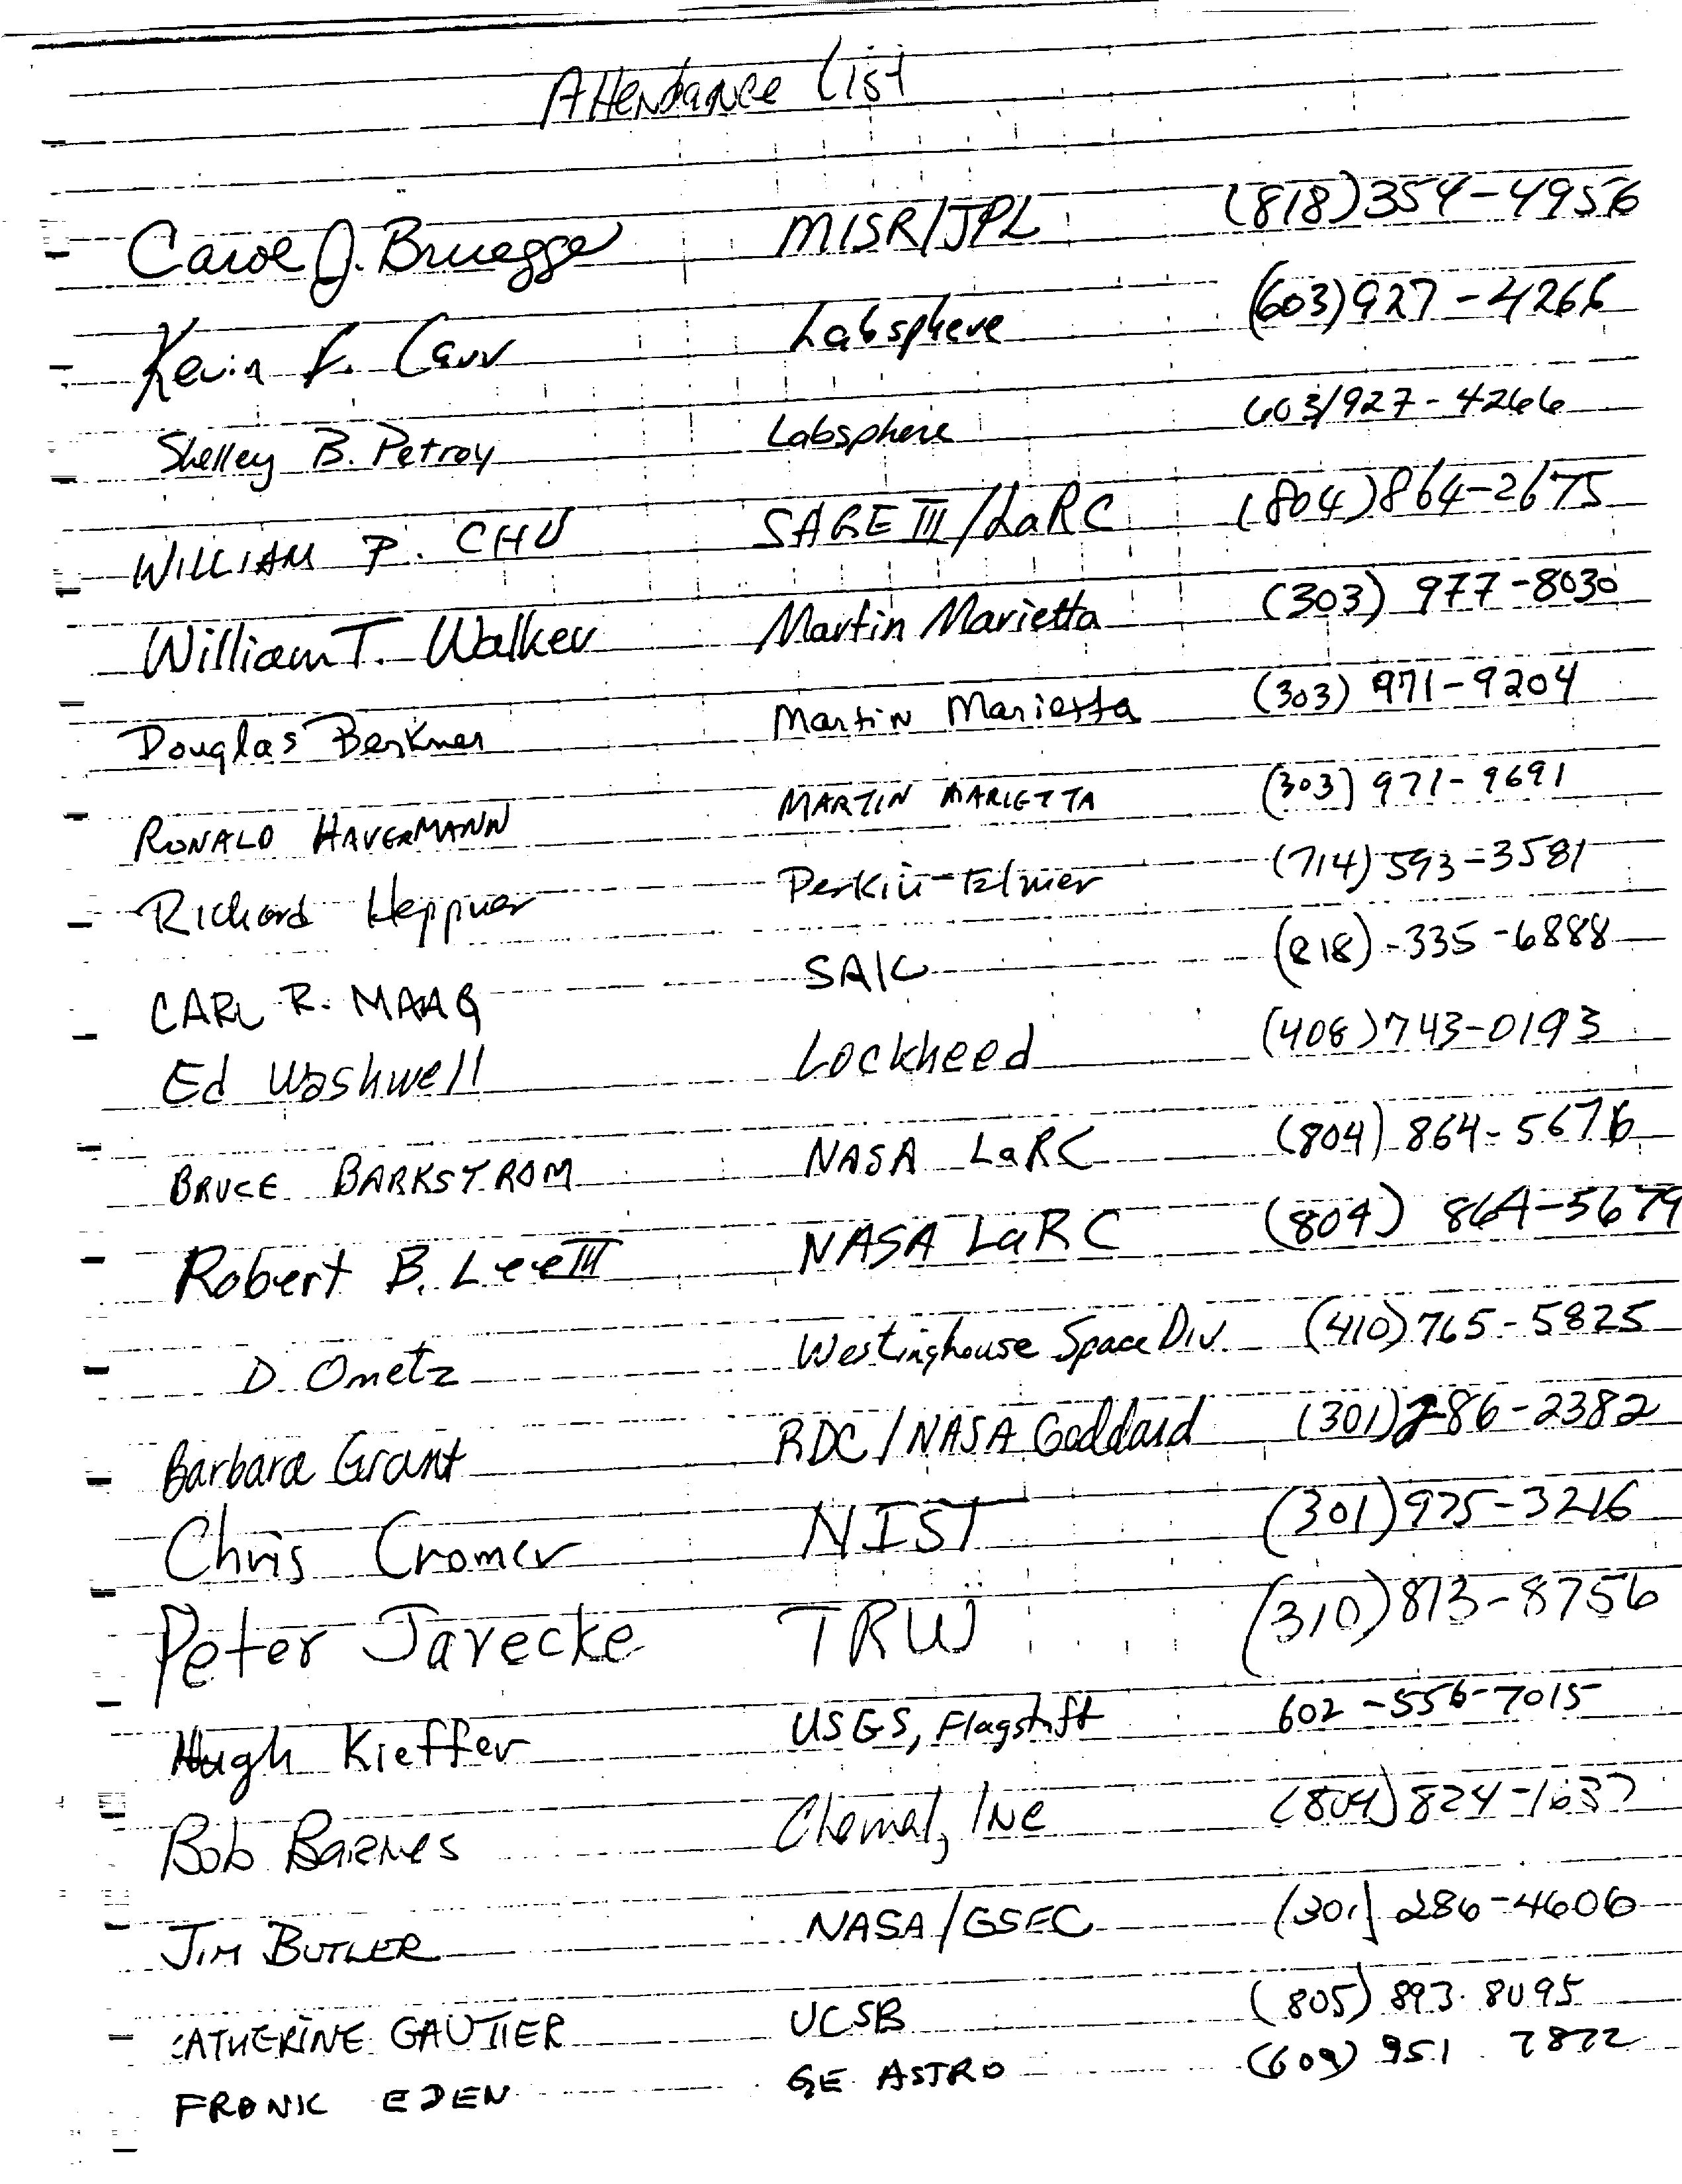 Attendance List
Carol J. Bruegge MISR/JPL (818)354-4956
Kevin F. Carr Labsphere (603)927-4266
Shelley B. Petroy Labsphere 603/927-4266
WILLIAM P. CHU SAGE III/LaRC (804)864-2675
William T. Walker Martin Marietta (303) 977-8030
Douglas Berkner Martin Marietta (303) 971-9204
RONALD HAVERMANN MARTIN MARIETTA (303) 971-9691
Richard Heppner Perkin-Elmer (714) 593-3581
CARL R. MAAG SAIC (818)-335-6888
Ed Washwell Lockheed (408)743-0193
BRUCE BARKSTROM NASA LaRC (804) 864-5676
Robert B. Lee III NASA LaRC (804) 864-5679
D. Ometz Westinghouse Space Div. (410) 765-5825
Barbara Grant RDC/NASA Goddard (301)286-2382
Chris Cromer NIST (301)975-3216
Peter Jarecke TRW (310)813-8756
Hugh Kieffer USGS, Flagstaff 602-556-7015
Bob Barnes Chemal, Inc (804) 824-1637
JIM BUTLER NASA/GSFC (301) 286-4606
CATHERINE GAUTIER UCSB (805) 893.8095
FRANK EDEN GE ASTRO (609) 951